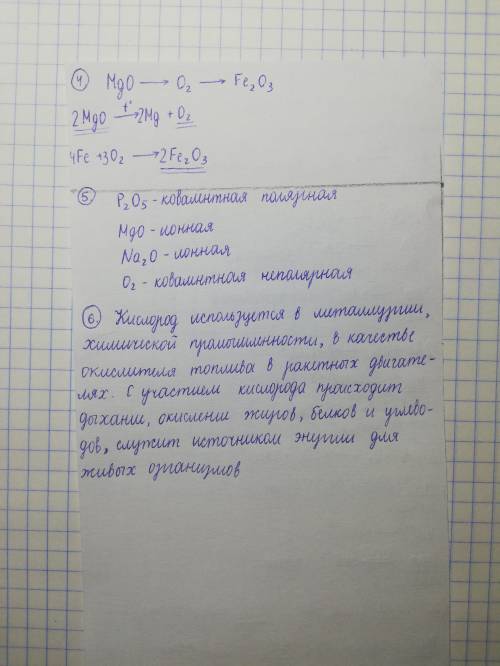 ④ MgO → O₂ → Fe₂O₃
2MgO t°→ 2Mg + O₂
4Fe + 3O₂ → 2Fe₂O₃
⑤. P₂O₅ - ковалнтная полярная
MgO - ионная
Na₂O - ионная
O₂ - ковалнтная неполярная
⑥. Кислород используется в металлургии,
химической промышленности, в качестве
окислителя топлива в ракетных двигате-
лях. С участием кислорода происходит
дыхание, окисление жиров, белков и углево-
дов, служит источником энергии для
живых организмов